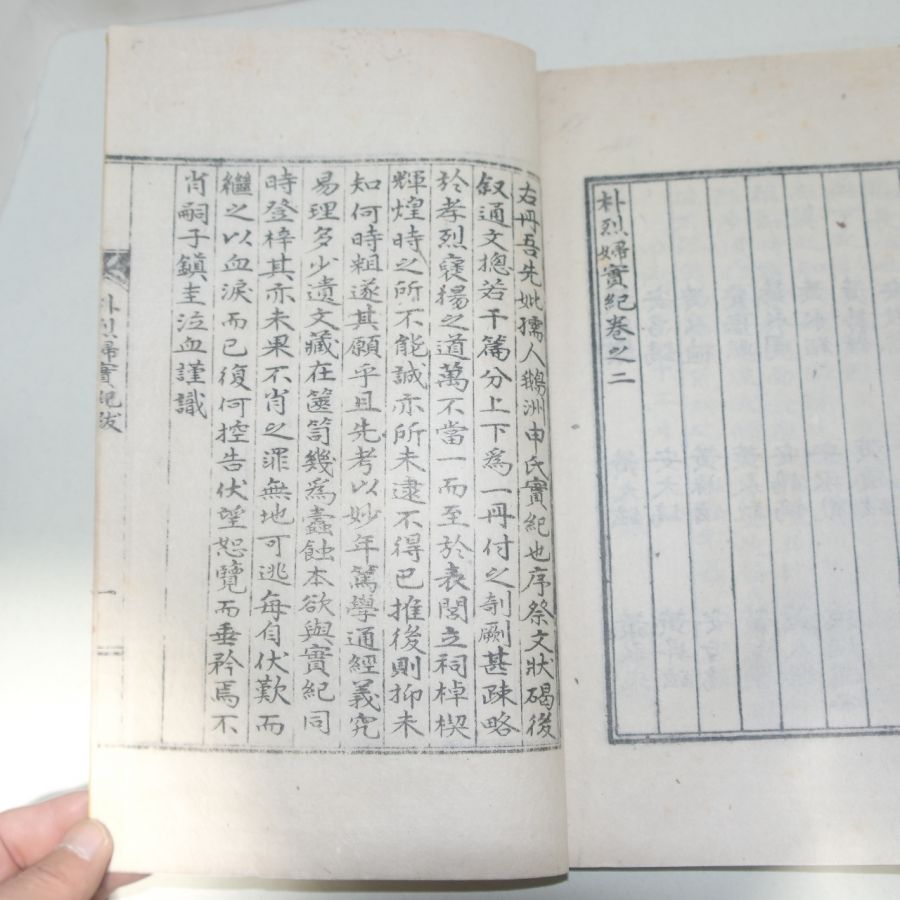 朴烈婦實紀卷之二
右丹吾先妣孺人鵝洲申氏實紀也序祭文狀碣後
敍通文摠若干篇分上下爲一丹付之剞劂甚疎略
於孝烈褒揚之道萬不當一而至於表閭立祠棹楔
輝煌時之所不能誠亦所未逮不得已推後則抑未
知何時粗遂其願乎且先考以妙年篤學通經義究
易理多少遺文藏在篋笥幾爲蠹蝕本欲與實紀同
時登梓其亦未果不肖之罪無地可逃每自伏歎而
繼之以血淚而已復何控告伏望恕覽而垂矜焉不
肖嗣子鎭圭泣血謹識
朴烈婦實紀跋
一